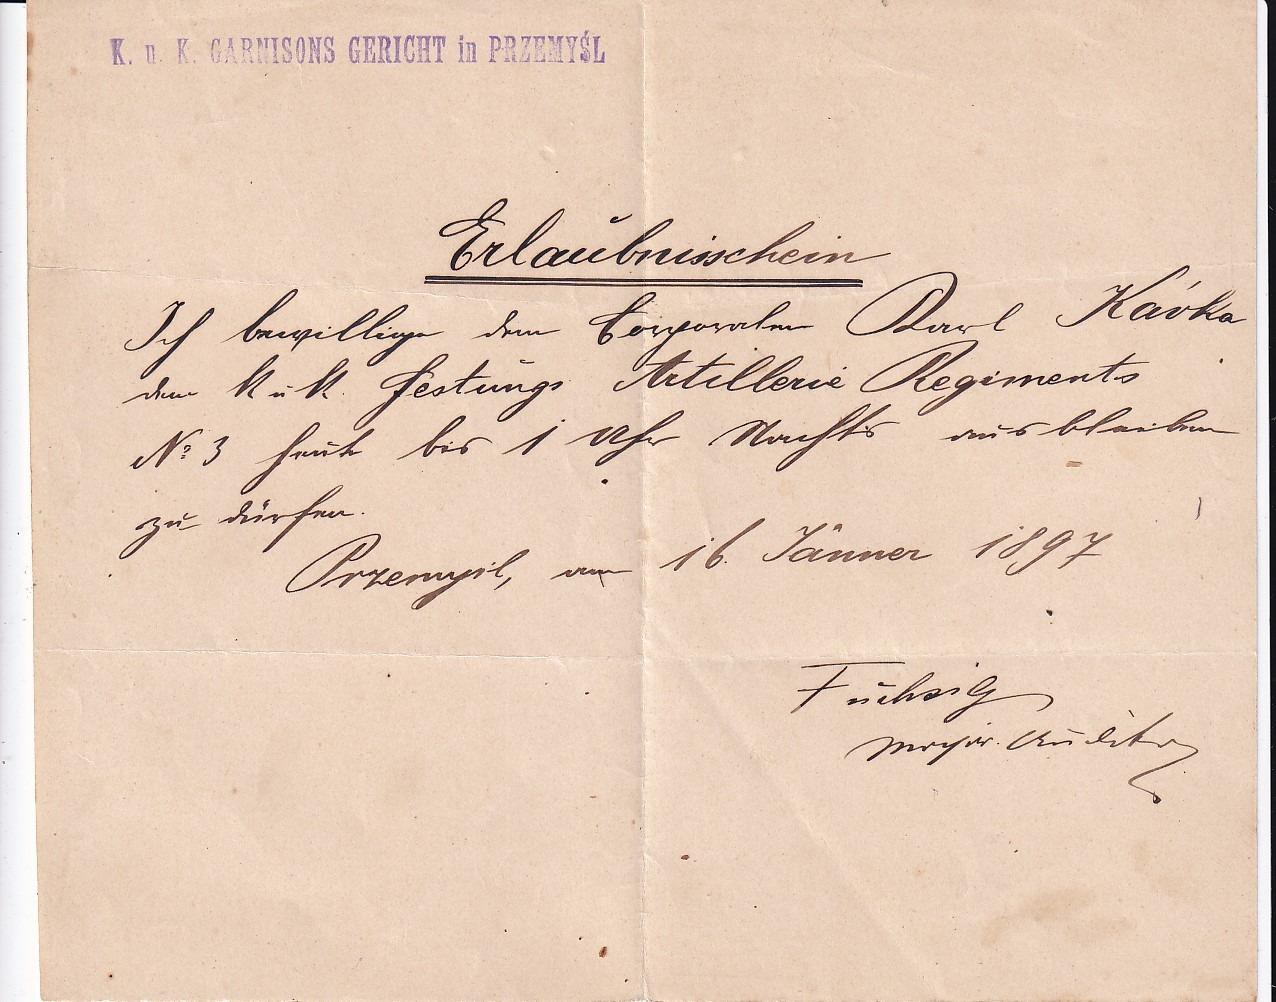 K. u. K. GARNISONS GERICHT in PRZEMYŚL
Erlaubnisschein
Ich bewillige dem Corporalen Karl Kávka
des k u k. Festungs Artillerie Regiments
No 3 heute bis 1 Uhr Nachts ausbleiben
zu dürfen.
Przemysl, am 16. Jänner 1897
Fuchsig
Major Auditor